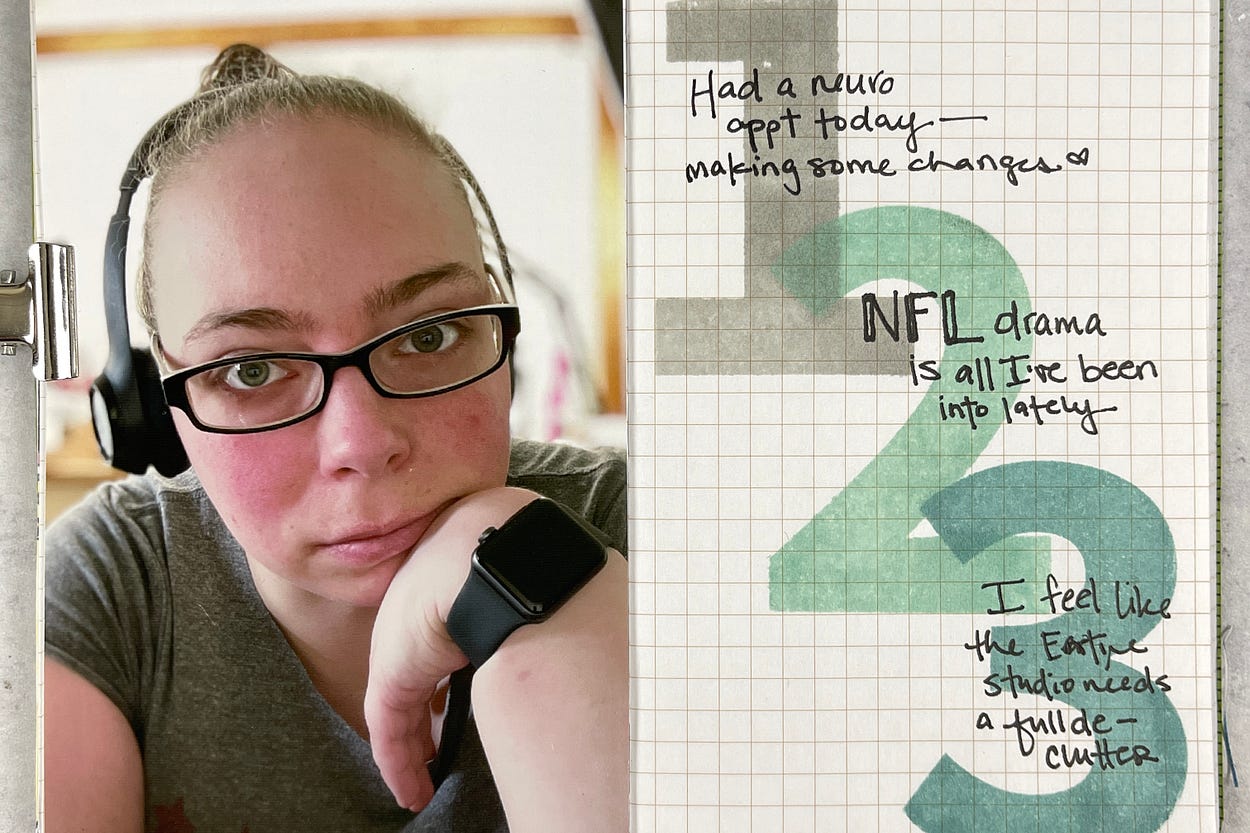 1
Had a neuro
appt today —
making some changes
2
NFL drama
is all I've been
into lately
3
I feel like
the Entire
studio needs
a full de-
clutter